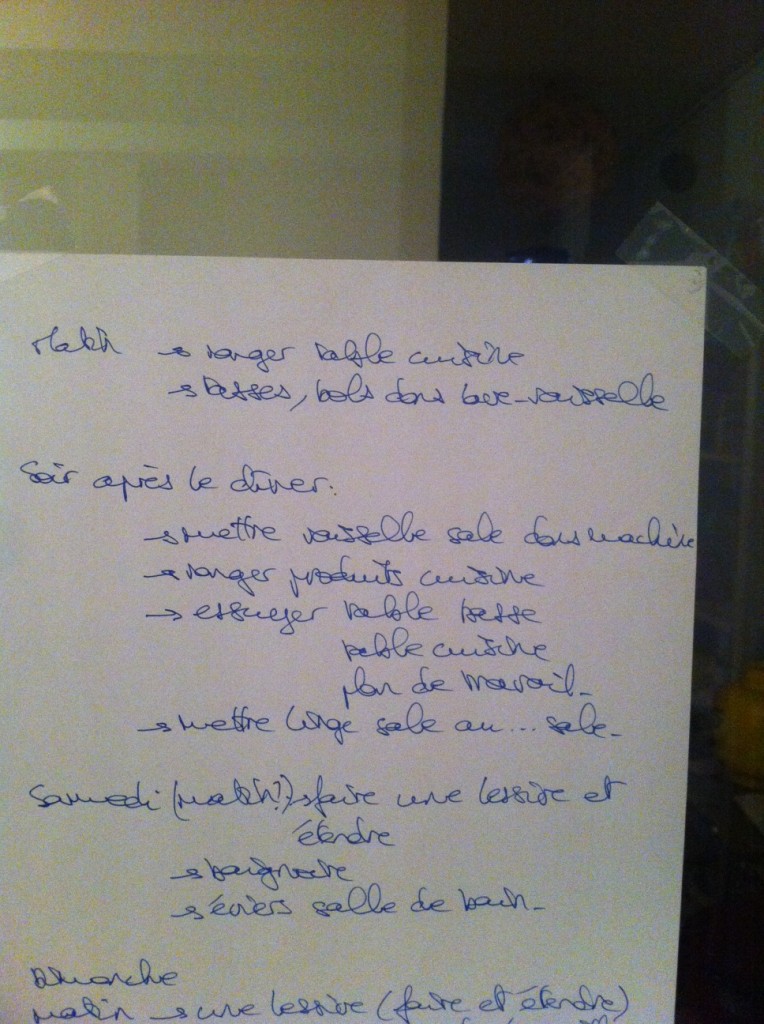 Matin → ranger table cuisine
→ tasses, bols dans lave-vaisselle
Soir après le dîner:
→ mettre vaisselle sale dans machine
→ ranger produits cuisine
→ essuyer table basse
table cuisine
plan de travail.
→ mettre linge sale au... sale.
Samedi (matin?) → faire une lessive et
étendre
→ baignoire
→ éviers salle de bain.
Dimanche
matin → une lessive (faire et étendre)